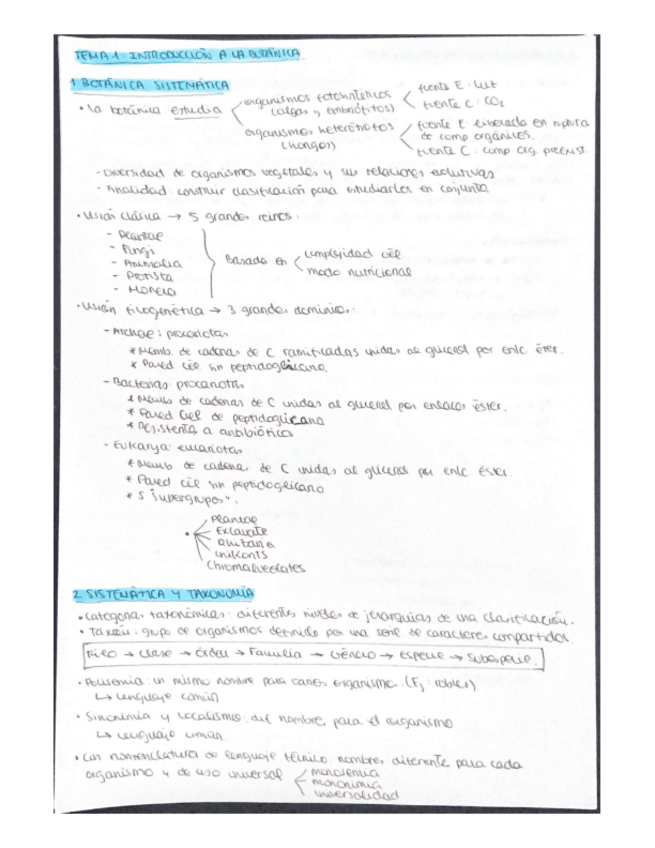 TEMA 1: INTRODUCCIÓN A LA BOTÁNICA
1 BOTÁNICA SISTEMÁTICA
• La botánica estudia
organismos fotosintéticos (algas y embriofitos)
fuente E: luz
fuente C: CO2
organismos heterótrofos (hongos)
fuente E: liberada en ruptura de comp orgánicos.
fuente C: comp org. preexist.
- Diversidad de organismos vegetales y sus relaciones evolutivas
- Finalidad: construir clasificación para estudiarlos en conjunto
• Visión clásica → 5 grandes reinos:
- Plantae
- Fungi
- Animalia
- Protista
- Monera
Basado en
complejidad cél
modo nutricional
• Visión filogenética → 3 grandes dominios:
- Archae: procariotas
* Memb. de cadenas de C ramificadas unidas al glicerol por enlc éter.
* Pared cél sin peptidoglicano.
- Bacterias: procariotas
* Memb de cadenas de C unidas al glicerol por enlaces éster.
* Pared cel de peptidoglicano
* Resistentes a antibióticos
- Eukarya: eucariotas
* Memb de cadenas de C unidas al glicerol por enlc éster.
* Pared cél sin peptidoglicano
* 5 "supergrupos".
Plantae
Excavate
Rhizaria
Unikonts
Chromalveolates
2. SISTEMÁTICA Y TAXONOMÍA
• Categorías taxonómicas: diferentes niveles de jerarquías de una clasificación.
• Taxón: grupo de organismos definido por una serie de caracteres compartidos
Filo → Clase → Orden → Familia → Género → Especie → Subespecie.
• Polisemia: un mismo nombre para varios organismo. (Ej: robles)
↳ lenguaje común
• Sinonimia y localismo: dif nombre para el organismo
↳ lenguaje común.
• Con nomenclatura de lenguaje técnico: nombres diferente para cada
organismo y de uso universal
monosemia
mononimia
universalidad